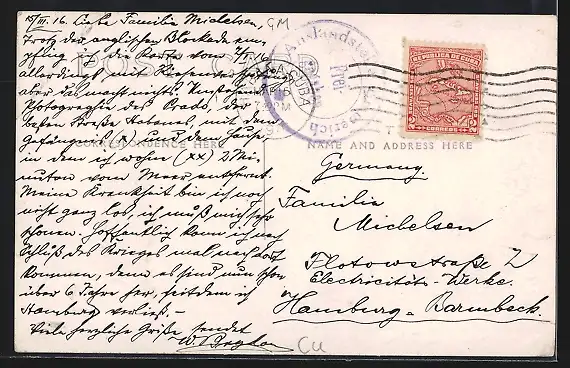 15/III. 16. Liebe Familie Michelsen,
GM
Trotz der englischen Blockade em-
pfing ich die Karte vom 7/I. 16
allerdings mit
aber das macht nichts.
Photografie des Prado, der
besten Straße Habanas, mit dem
Gefängniß (x) und dem Hause
in dem ich wohne (xx) 2 Mi-
nuten vom Meer entfernt.
Meine Krankheit bin ich noch
nicht ganz los, ich muß mich sehr
schonen. Hoffentlich kann ich nach
Schluß des Krieges mal nach dort
kommen, denn es sind nun schon
über 6 Jahre her, seitdem ich
Hamburg verließ. —
Viele herzliche Grüße sendet
CU
POST
CORRESPONDENCE HERE
Auslandsst
frei
HABANA CUBA
REPUBLICA DE CUBA
2 CORREOS 2
NAME AND ADDRESS HERE
Germany.
Familie
Michelsen
Flotowstraße 2
Electricitäts-Werke.
Hamburg - Barmbeck.